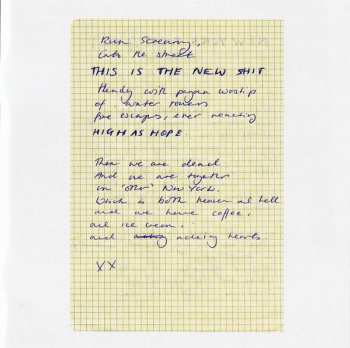 Run Screaming,
into the street
THIS IS THE NEW SHIT
Heady with pagan worship
of water towers
fire escapes, ever reaching
HIGH AS HOPE.
Then we are dead
And we are together
in 'other' New York.
Which is both heaven and hell
and we have coffee,
and ice cream,
and aching hearts.
XX